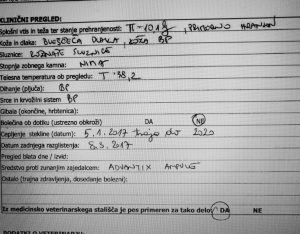 KLINIČNI PREGLED:
Splošni vtis in teža ter stanje prehranjenosti: TT=10,1 kg, PRIMERNO HRANJEN
Koža in dlaka: BLEŠČEČA DLAKA, KOŽA BP
Sluznice: ROŽNATE SLUZNICE
Stopnja zobnega kamna: NIMA
Telesna temperatura ob pregledu: T 38,2
Dihanje (pljuča): BP
Srce in krvožilni sistem: BP
Gibala (okončine, hrbtenica):
Bolečina ob dotiku (ustrezno obkroži) DA NE
Cepljenje stekline (datum): 5.1.2017 traja do 2020
Datum zadnjega razglistenja: 8.3.2017
Pregled blata dne / izvid:
Sredstvo proti zunanjim zajedalcem: ADVANTIX AMPULE
Ostalo (trajna zdravljenja, dosedanje bolezni):
Iz medicinsko veterinarskega stališča je pes primeren za tako delo: DA NE